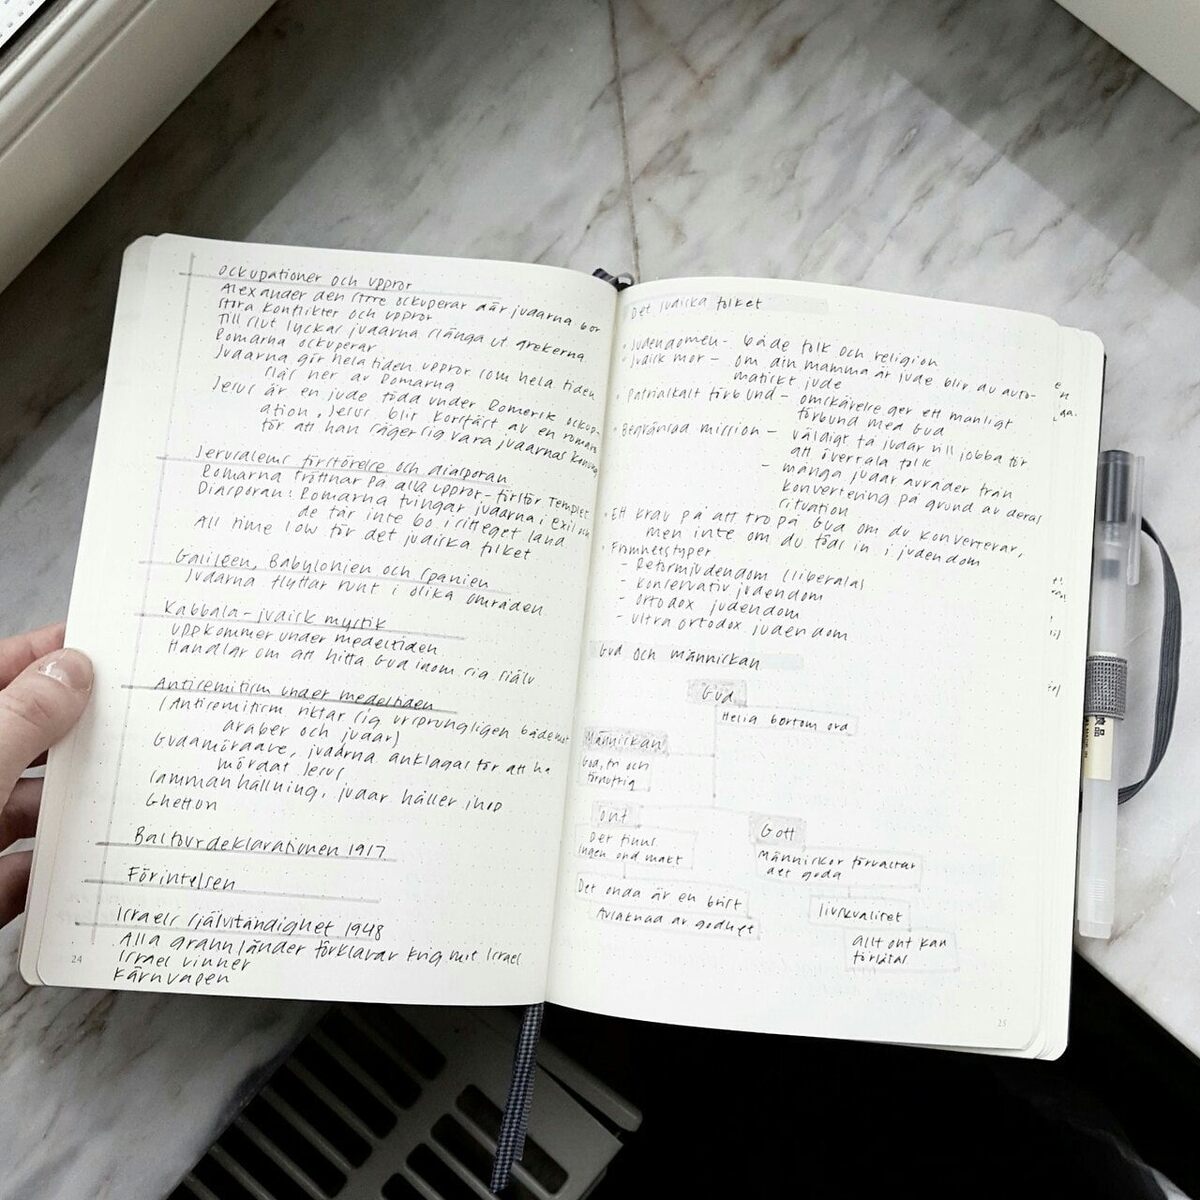 Ockupationer och uppror
Alexander den store ockuperar där judarna bor
Stora konflikter och uppror
Till slut lyckas judarna slänga ut grekerna
Romarna ockuperar
Judarna gör hela tiden uppror som hela tiden
slås ner av Romarna
Jesus är en jude född under Romersk ockup-
ation. Jesus blir korsfäst av en romare
för att han säger sig vara judarnas konung
Jerusalems förstörelse och diasporan
Romarna tröttnar på alla uppror - förstör Templet
Diasporan: Romarna tvingar judarna i exil och
de får inte bo i sitt eget land
All time low för det judiska folket
Galileen, Babylonien och Spanien
Judarna flyttar runt i olika områden
Kabbala - judisk mystik
Uppkommer under medeltiden
Handlar om att hitta Gud inom sig själv
Antisemitism under medeltiden
(Antisemitism riktar sig ursprungligen både mot
araber och judar)
Gudamördare, judarna anklagas för att ha
mördat Jesus
Sammanhållning, judar håller ihop
Ghetton
Balfourdeklarationen 1917
Förintelsen
Israels självständighet 1948
Alla grannländer förklarar krig mot Israel
Israel vinner
Kärnvapen
24
Det judiska folket
Judendomen - både folk och religion
Judisk mor - om din mamma är jude blir du auto-
matiskt jude
Patriarkalt förbund - omskärelse ger ett manligt
förbund med Gud
Begränsad mission - väldigt få judar vill jobba för
att övertala folk
- många judar avråder från
konvertering på grund av deras
situation
Ett krav på att tro på Gud om du konverterar,
men inte om du föds in i judendom
Fromhetstyper
- Reformjudendom (liberala)
- Konservativ judendom
- Ortodox judendom
- Ultraortodox judendom
Gud och människan
Gud
Helig bortom ord
Människan
God, fri och
förnuftig
Ont
Det finns
ingen ond makt
Gott
Människor förvaltar
det goda
Det onda är en brist
Avsaknad av godhet
livskvalitet
Allt ont kan
förlåtas
25